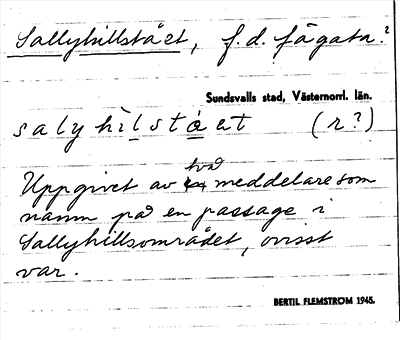 Sallyhillstået, f.d. fägata?
Sundsvalls stad, Västernorrl. län.
salyhilstået (r?)
två
Uppgivet av en meddelare som
namn på en passage i
Sallyhillsområdet, ovisst
var.
BERTIL FLEMSTRÖM 1945.